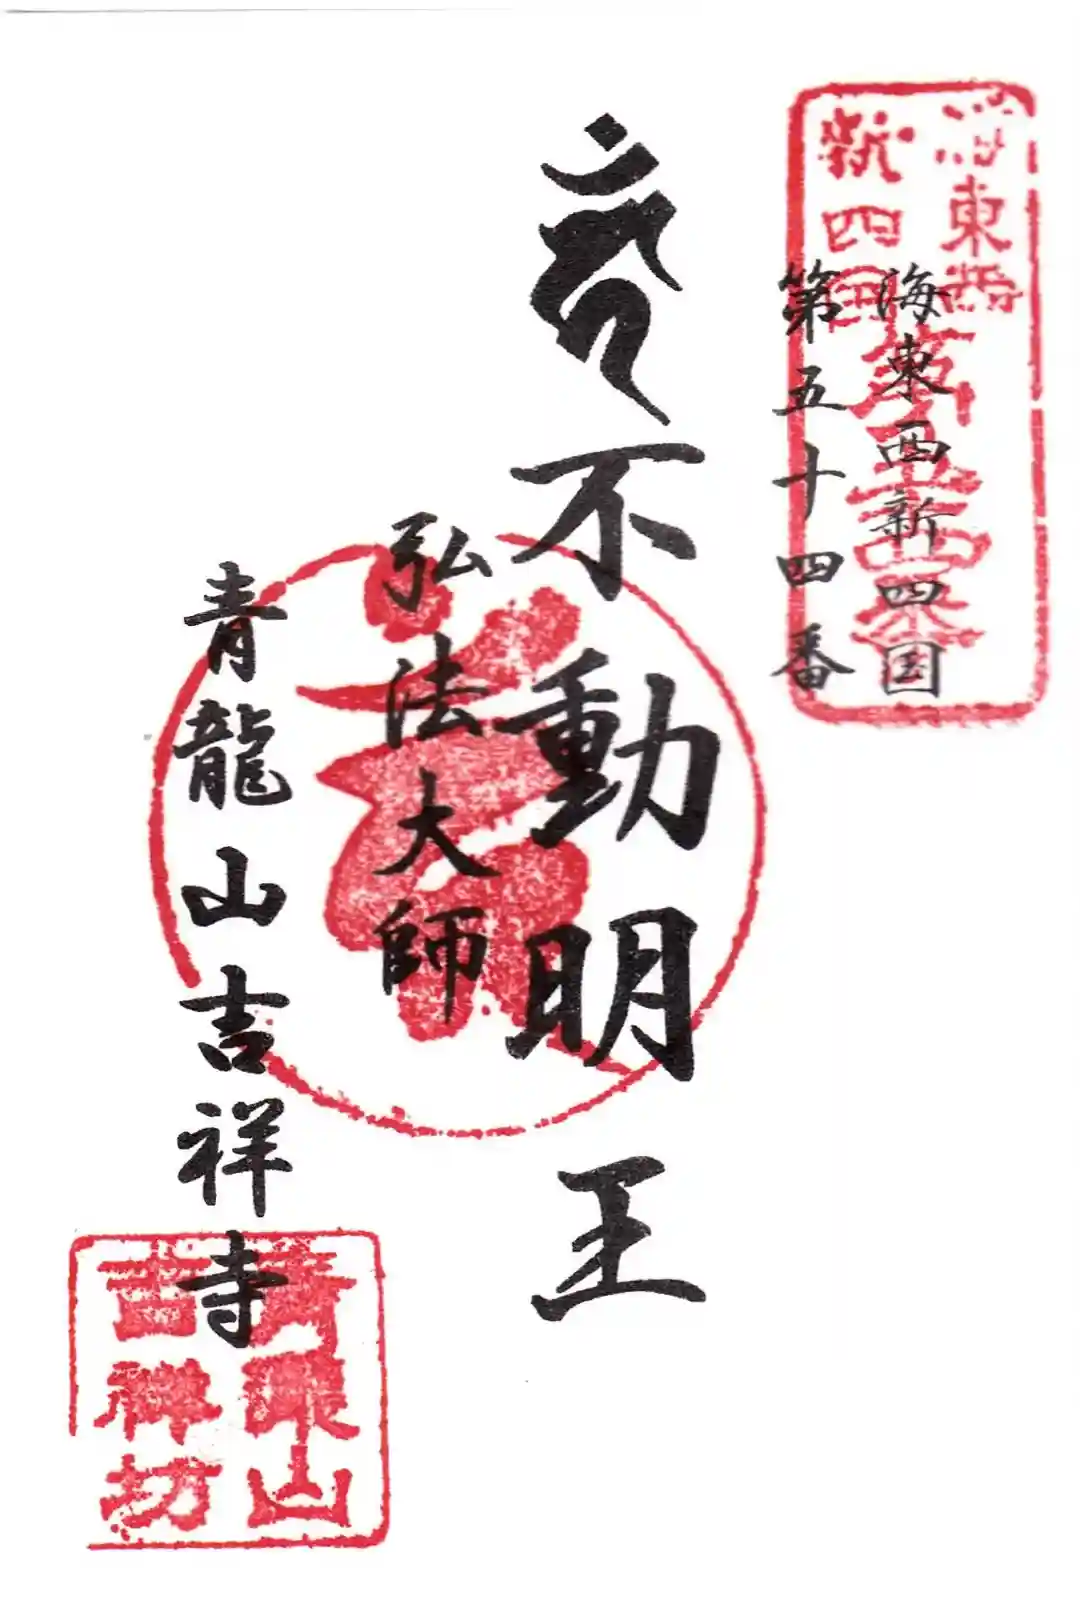 海東西新四国
第五十四番
不動明王
弘法大師
青龍山吉祥寺
海東西
新四国
第五十四番
青龍山
吉祥坊